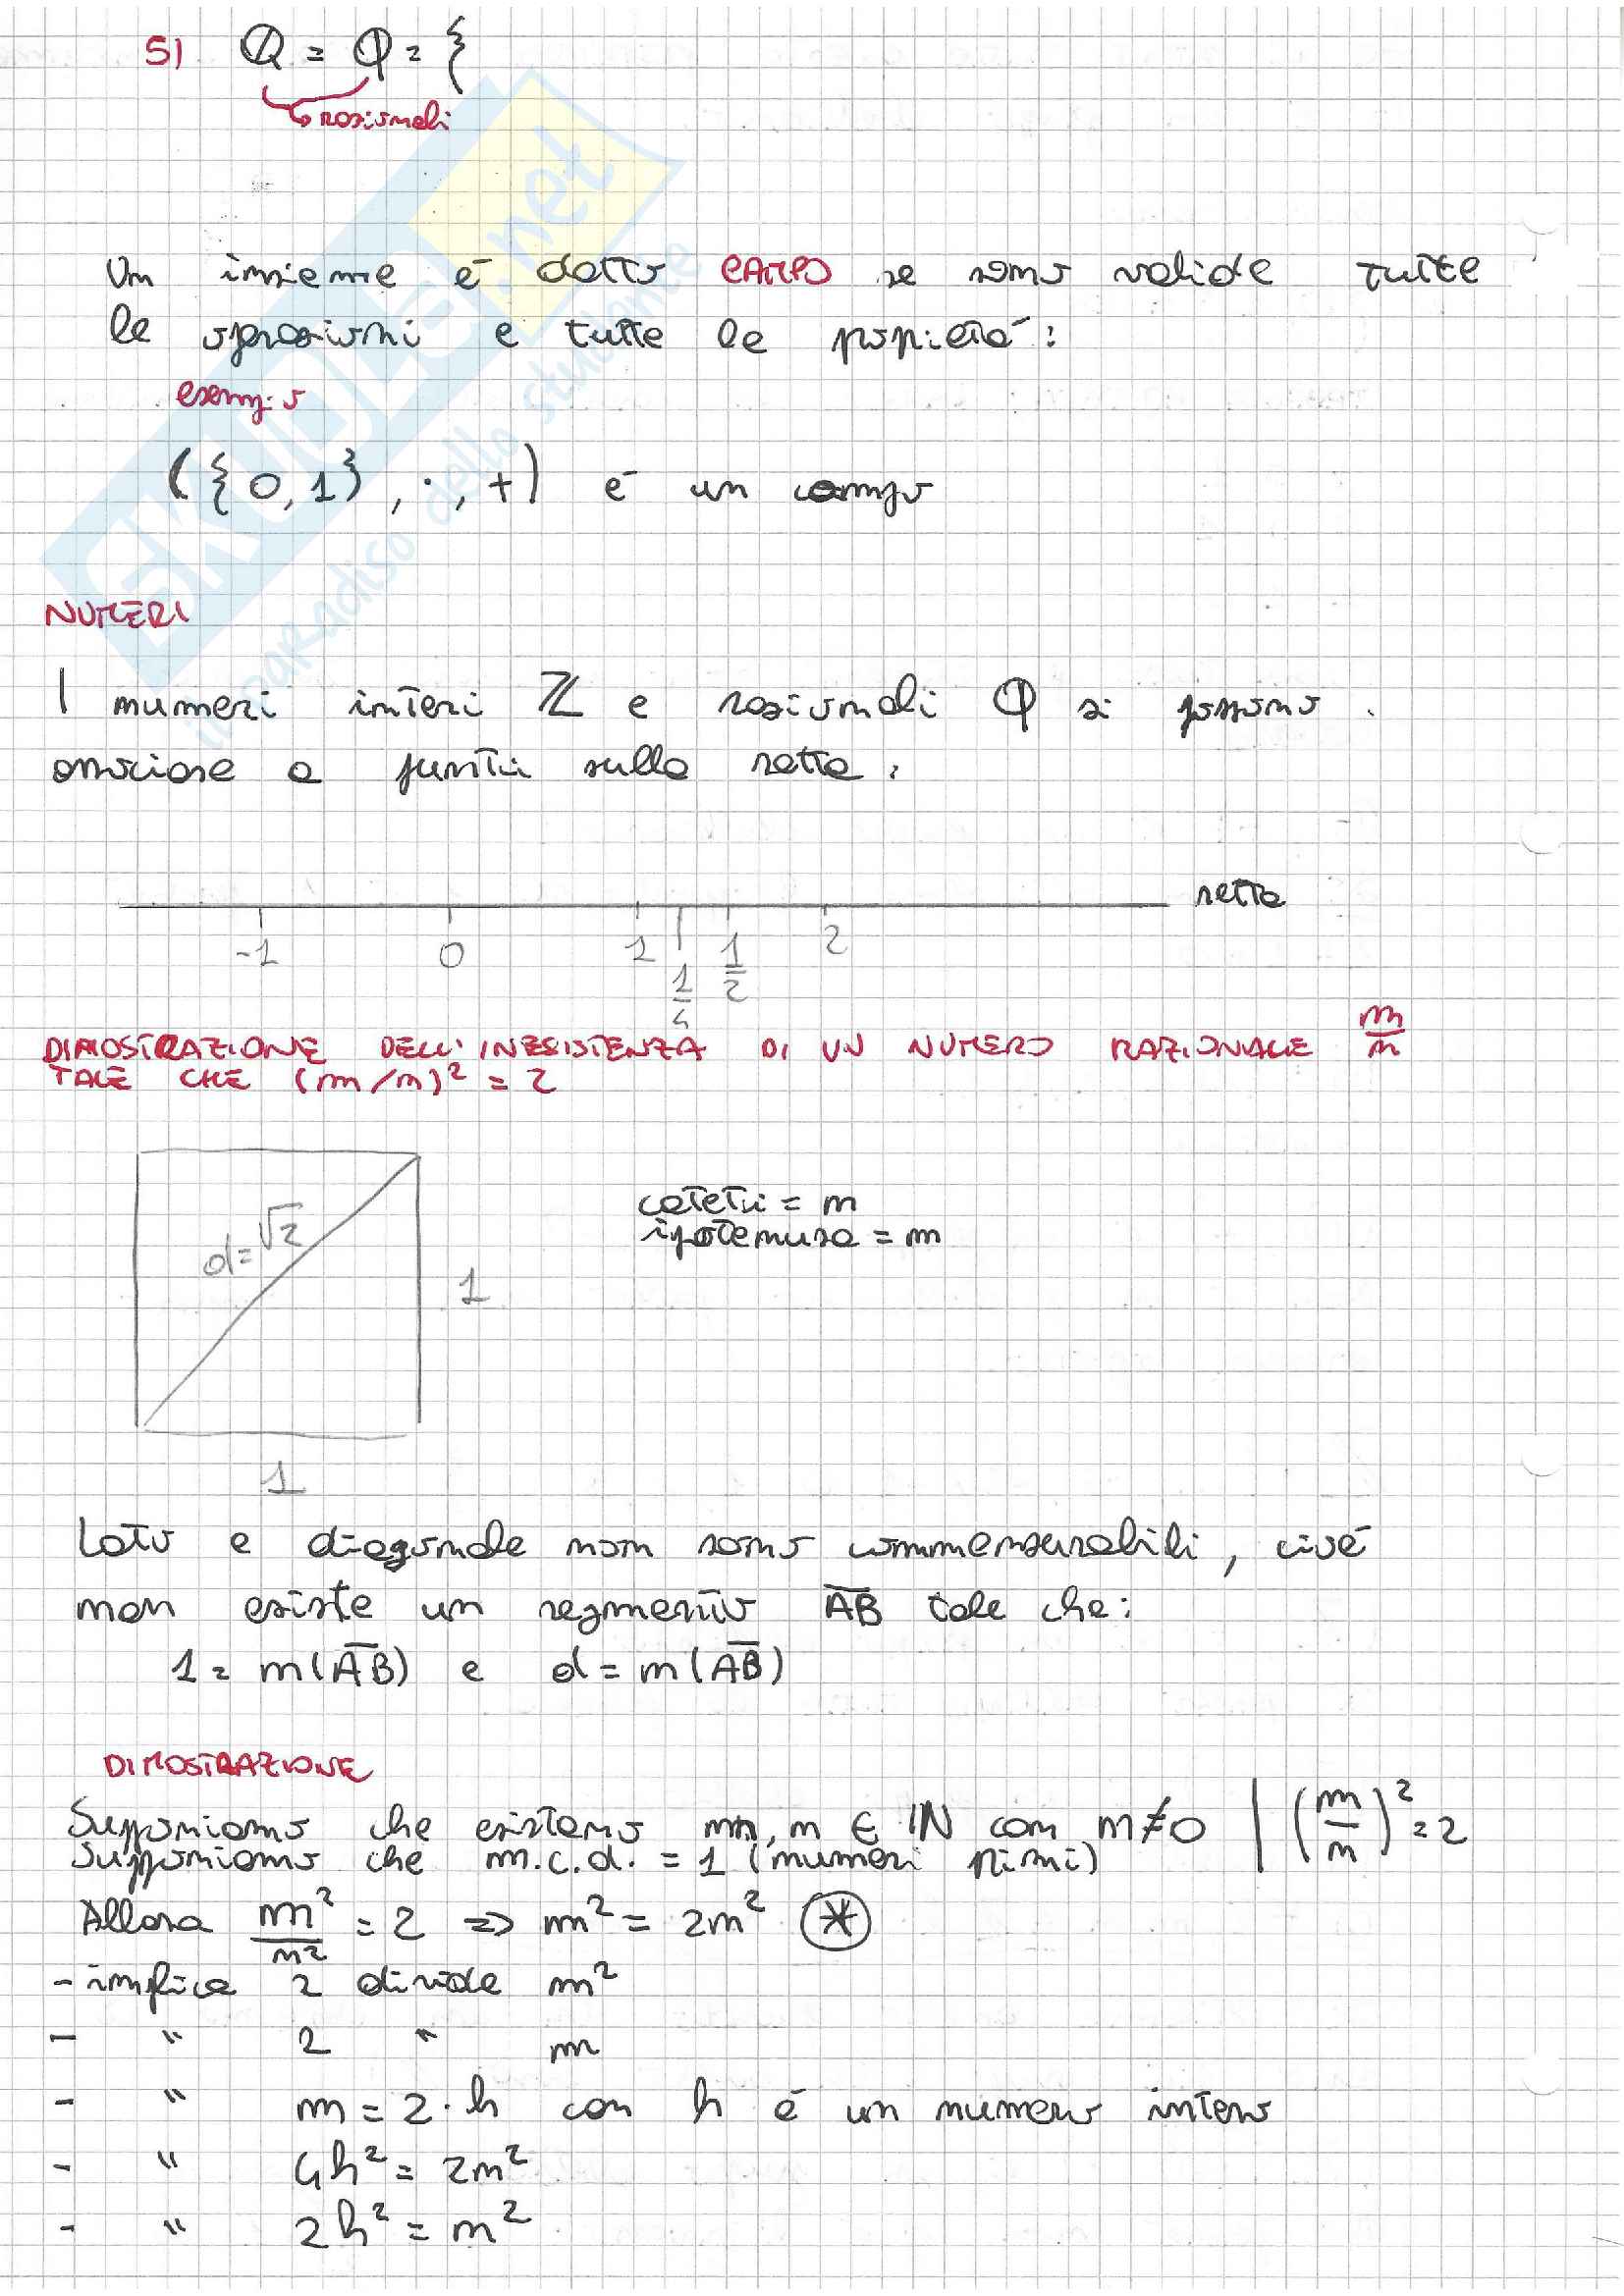 5) Q = ℚ = {
razionali
Un insieme é detto CAMPO se sono valide tutte
le operazioni e tutte le propietá:
esempio
({0,1}, ·, +) é un campo
NUMERI
I numeri interi ℤ e razionali ℚ si possono
associare a punti sulla retta.
retta
-1 0 1 1/4 1/2 2
DIMOSTRAZIONE DELL'INESISTENZA DI UN NUMERO RAZIONALE m/n
TALE CHE (m/n)² = 2
d=√2
cateti = n
ipotenusa = m
1
1
Lato e diagonale non sono commensurabili, cioé
non esiste un segmento A̅B̅ tale che:
1 = n(A̅B̅) e d = m(A̅B̅)
DIMOSTRAZIONE
Supponiamo che esistano m, n ∈ ℕ con n≠0 | (m/n)² = 2
Supponiamo che m.c.d. = 1 (numeri primi)
Allora m²/n² = 2 => m² = 2n² (*)
- implica 2 divide m²
- " 2 " m
- " m = 2·h con h é un numero intero
- " 4h² = 2n²
- " 2h² = n²
SKUOLA.net
il paradiso dello studente